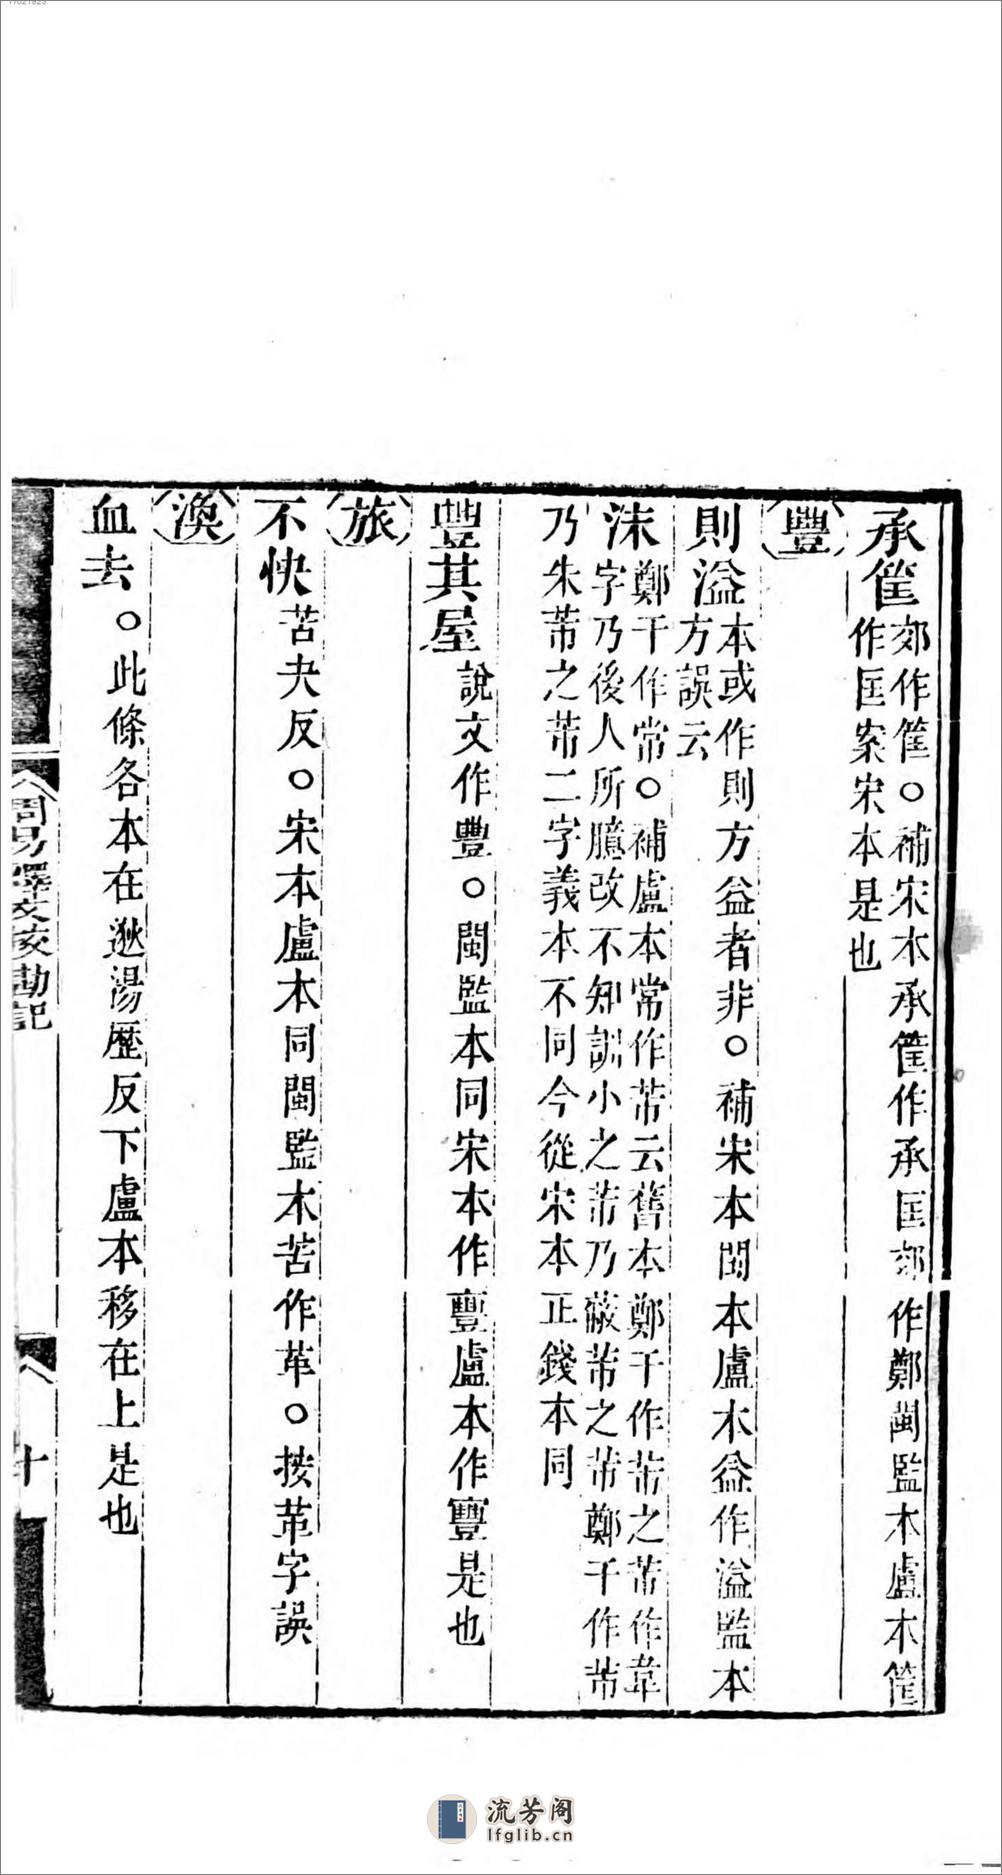 承筐郊作筐○補宋本承筐作承匡郊作鄭閩監本盧本筐
作匡案宋本是也
豐
則溢本或作則方益者非○補宋本閩本盧本益作溢監本
方誤云
沬鄭干作常○補盧本常作芾云舊本鄭干作芾之芾作韋
字乃後人所臆改不知訓小之芾乃蔽芾之芾鄭干作芾
乃朱芾之芾二字義本不同今從宋本正錢本同
豐其屋說文作豐○閩監本同宋本作寷盧本作寷是也
旅
不快苦夬反○宋本盧本同閩監本苦作苇○按苇字誤
渙
血去○此條各本在逖湯歷反下盧本移在上是也
周易釋文挍勘記
十
流芳阁
lfglib.cn